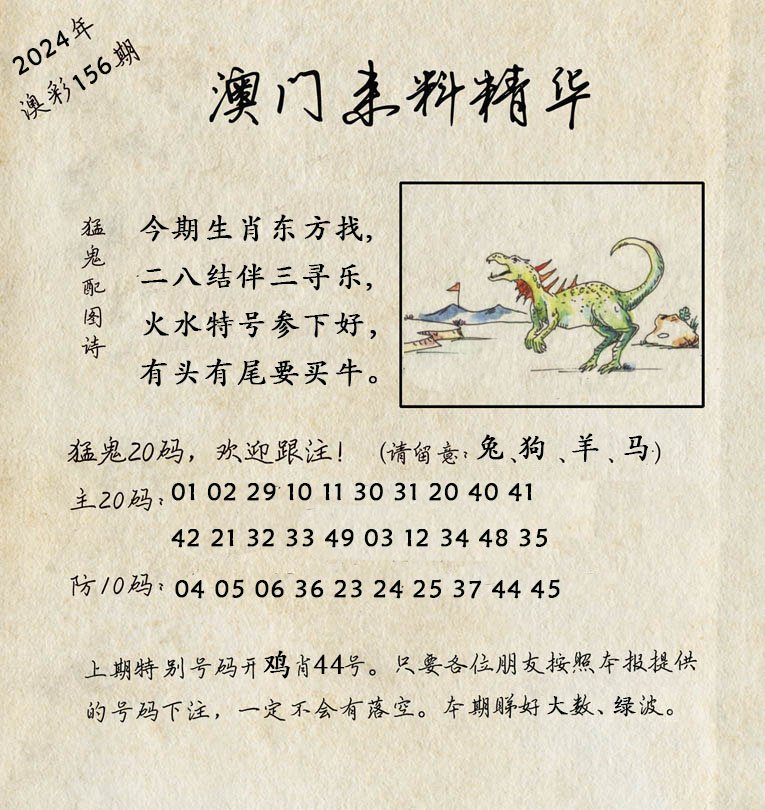 2024年
澳彩156期
澳门来料精华
猛鬼配图诗
今期生肖东方找，
二八结伴三寻乐，
火水特号参下好，
有头有尾要买牛。
猛鬼20码，欢迎跟注！（请留意：兔、狗、羊、马）
主20码：01 02 29 10 11 30 31 20 40 41
42 21 32 33 49 03 12 34 48 35
防10码：04 05 06 36 23 24 25 37 44 45
上期特别号码开鸡肖44号。只要各位朋友按照本报提供
的号码下注，一定不会有落空。本期睇好大数、绿波。